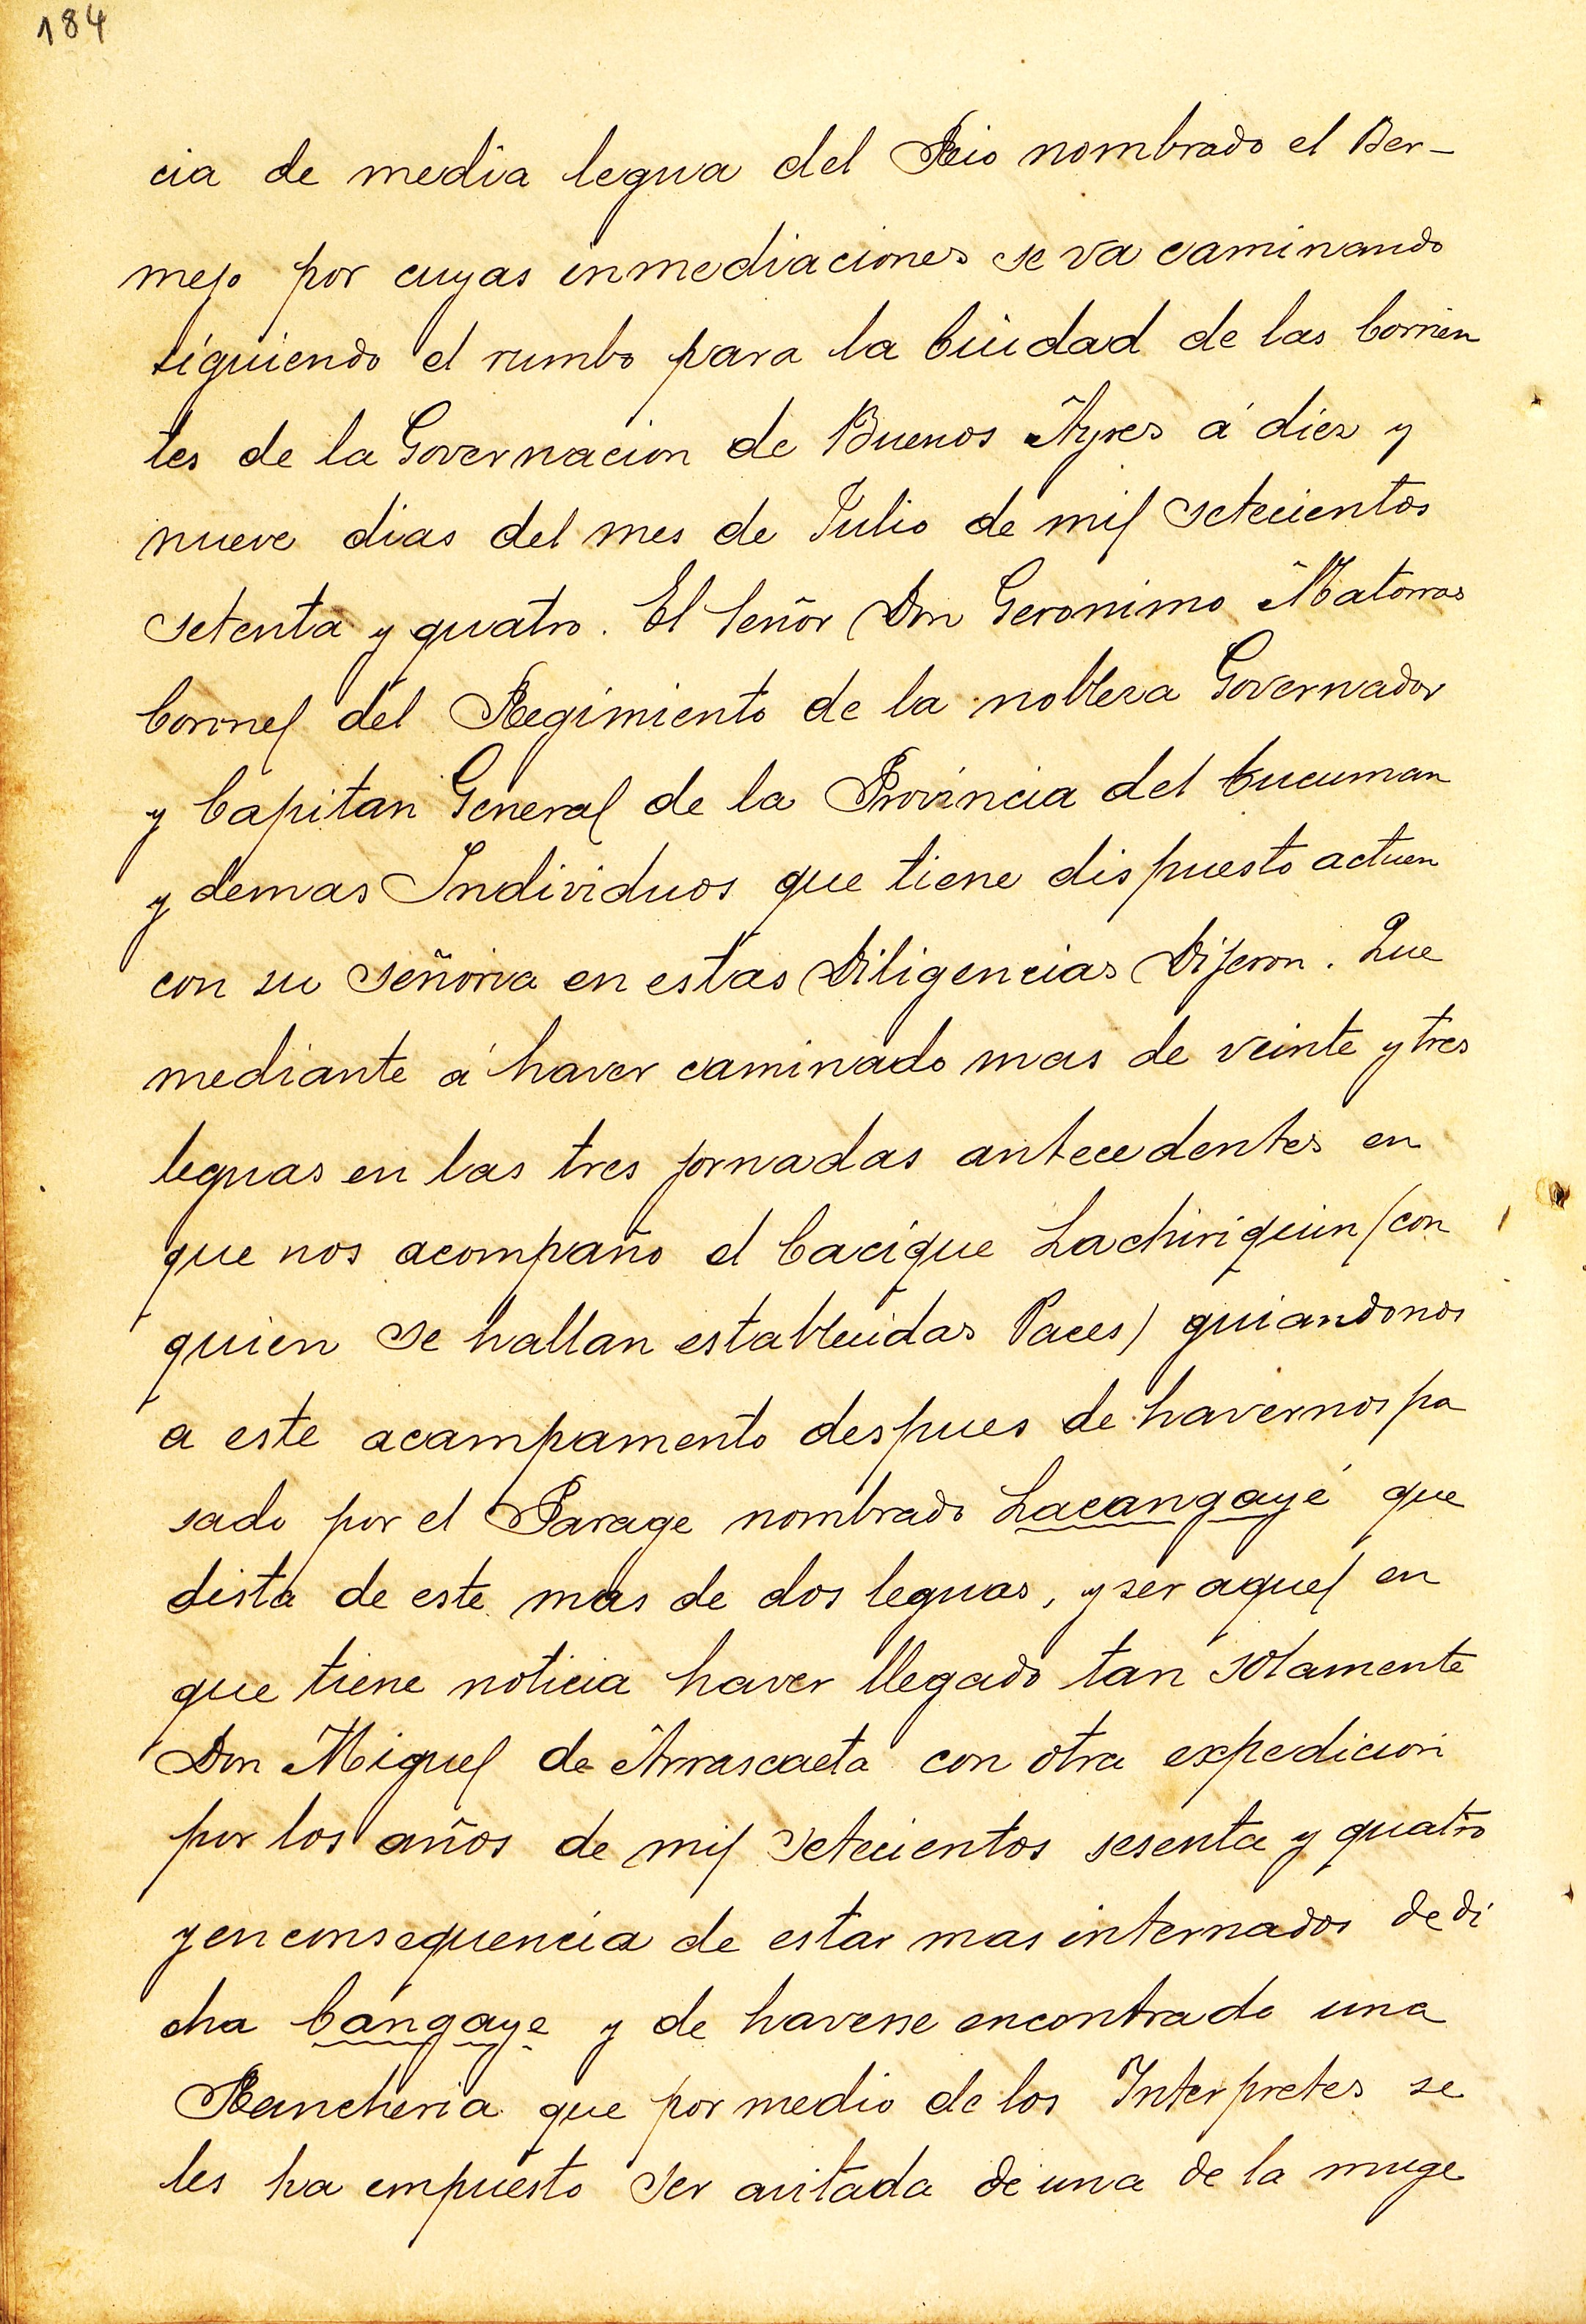 184
cia de media legua del Rio nombrado el Ber-
mejo por cuyas inmediaciones se va caminando
siguiendo el rumbo para la Ciudad de las Corrien
tes de la Governacion de Buenos Ayres á diez y
nueve dias del mes de Julio de mil setecientos
setenta y quatro. El Señor Don Geronimo Matorras
Coronel del Regimiento de la nobleza Governador
y Capitan General de la Provincia del Tucuman
y demas Individuos que tiene dispuesto actuen
con su Señoria en estas Diligencias Dijeron. Que
mediante á haver caminado mas de veinte y tres
leguas en las tres jornadas antecedentes en
que nos acompaño el Cacique Lachiriquin (con
quien se hallan establecidas Paces) guiandonos
a este acampamento despues de havernos pa
sado por el Parage nombrado Lacangayé que
dista de este mas de dos leguas, y ser aquel en
que tiene noticia haver llegado tan solamente
Don Miguel de Arrascaeta con otra expedicion
por los años de mil setecientos sesenta y quatro
y en consequencia de estar mas internados de di
cha Cangaye y de haverse encontrado una
Rancheria que por medio de los Interpretes se
les ha empuesto ser avitada de una de la muge